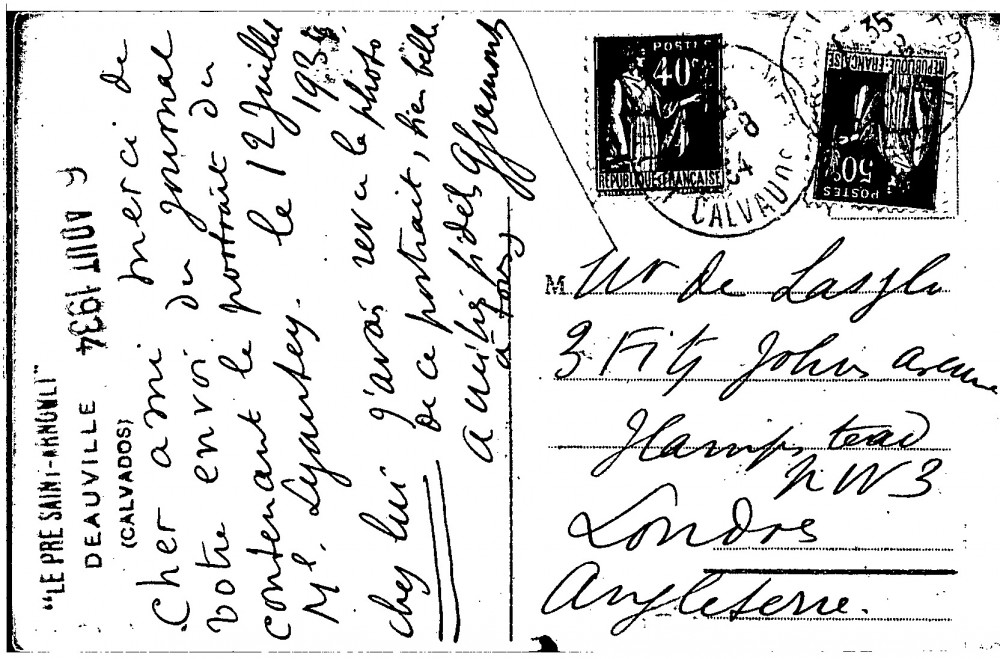 "LE PRE SAINT-ARNOULT"
DEAUVILLE 9 AOUT 1934
(CALVADOS)
Cher ami merci de
votre envoi du journal
contenant le portrait du
Ml. Lyautey. le 12 Juillet
1934
J'avais revu la photo
chez lui
de ce portrait, bien belle.
amitiés fidèles
à tous
POSTES
40c
REPUBLIQUE FRANÇAISE
CALVADOS
REPUBLIQUE FRANÇAISE
50c
POSTES
M Mr de Laszlo
3 Fitz Johns avenue
Hampstead
NW3
Londres
Angleterre.